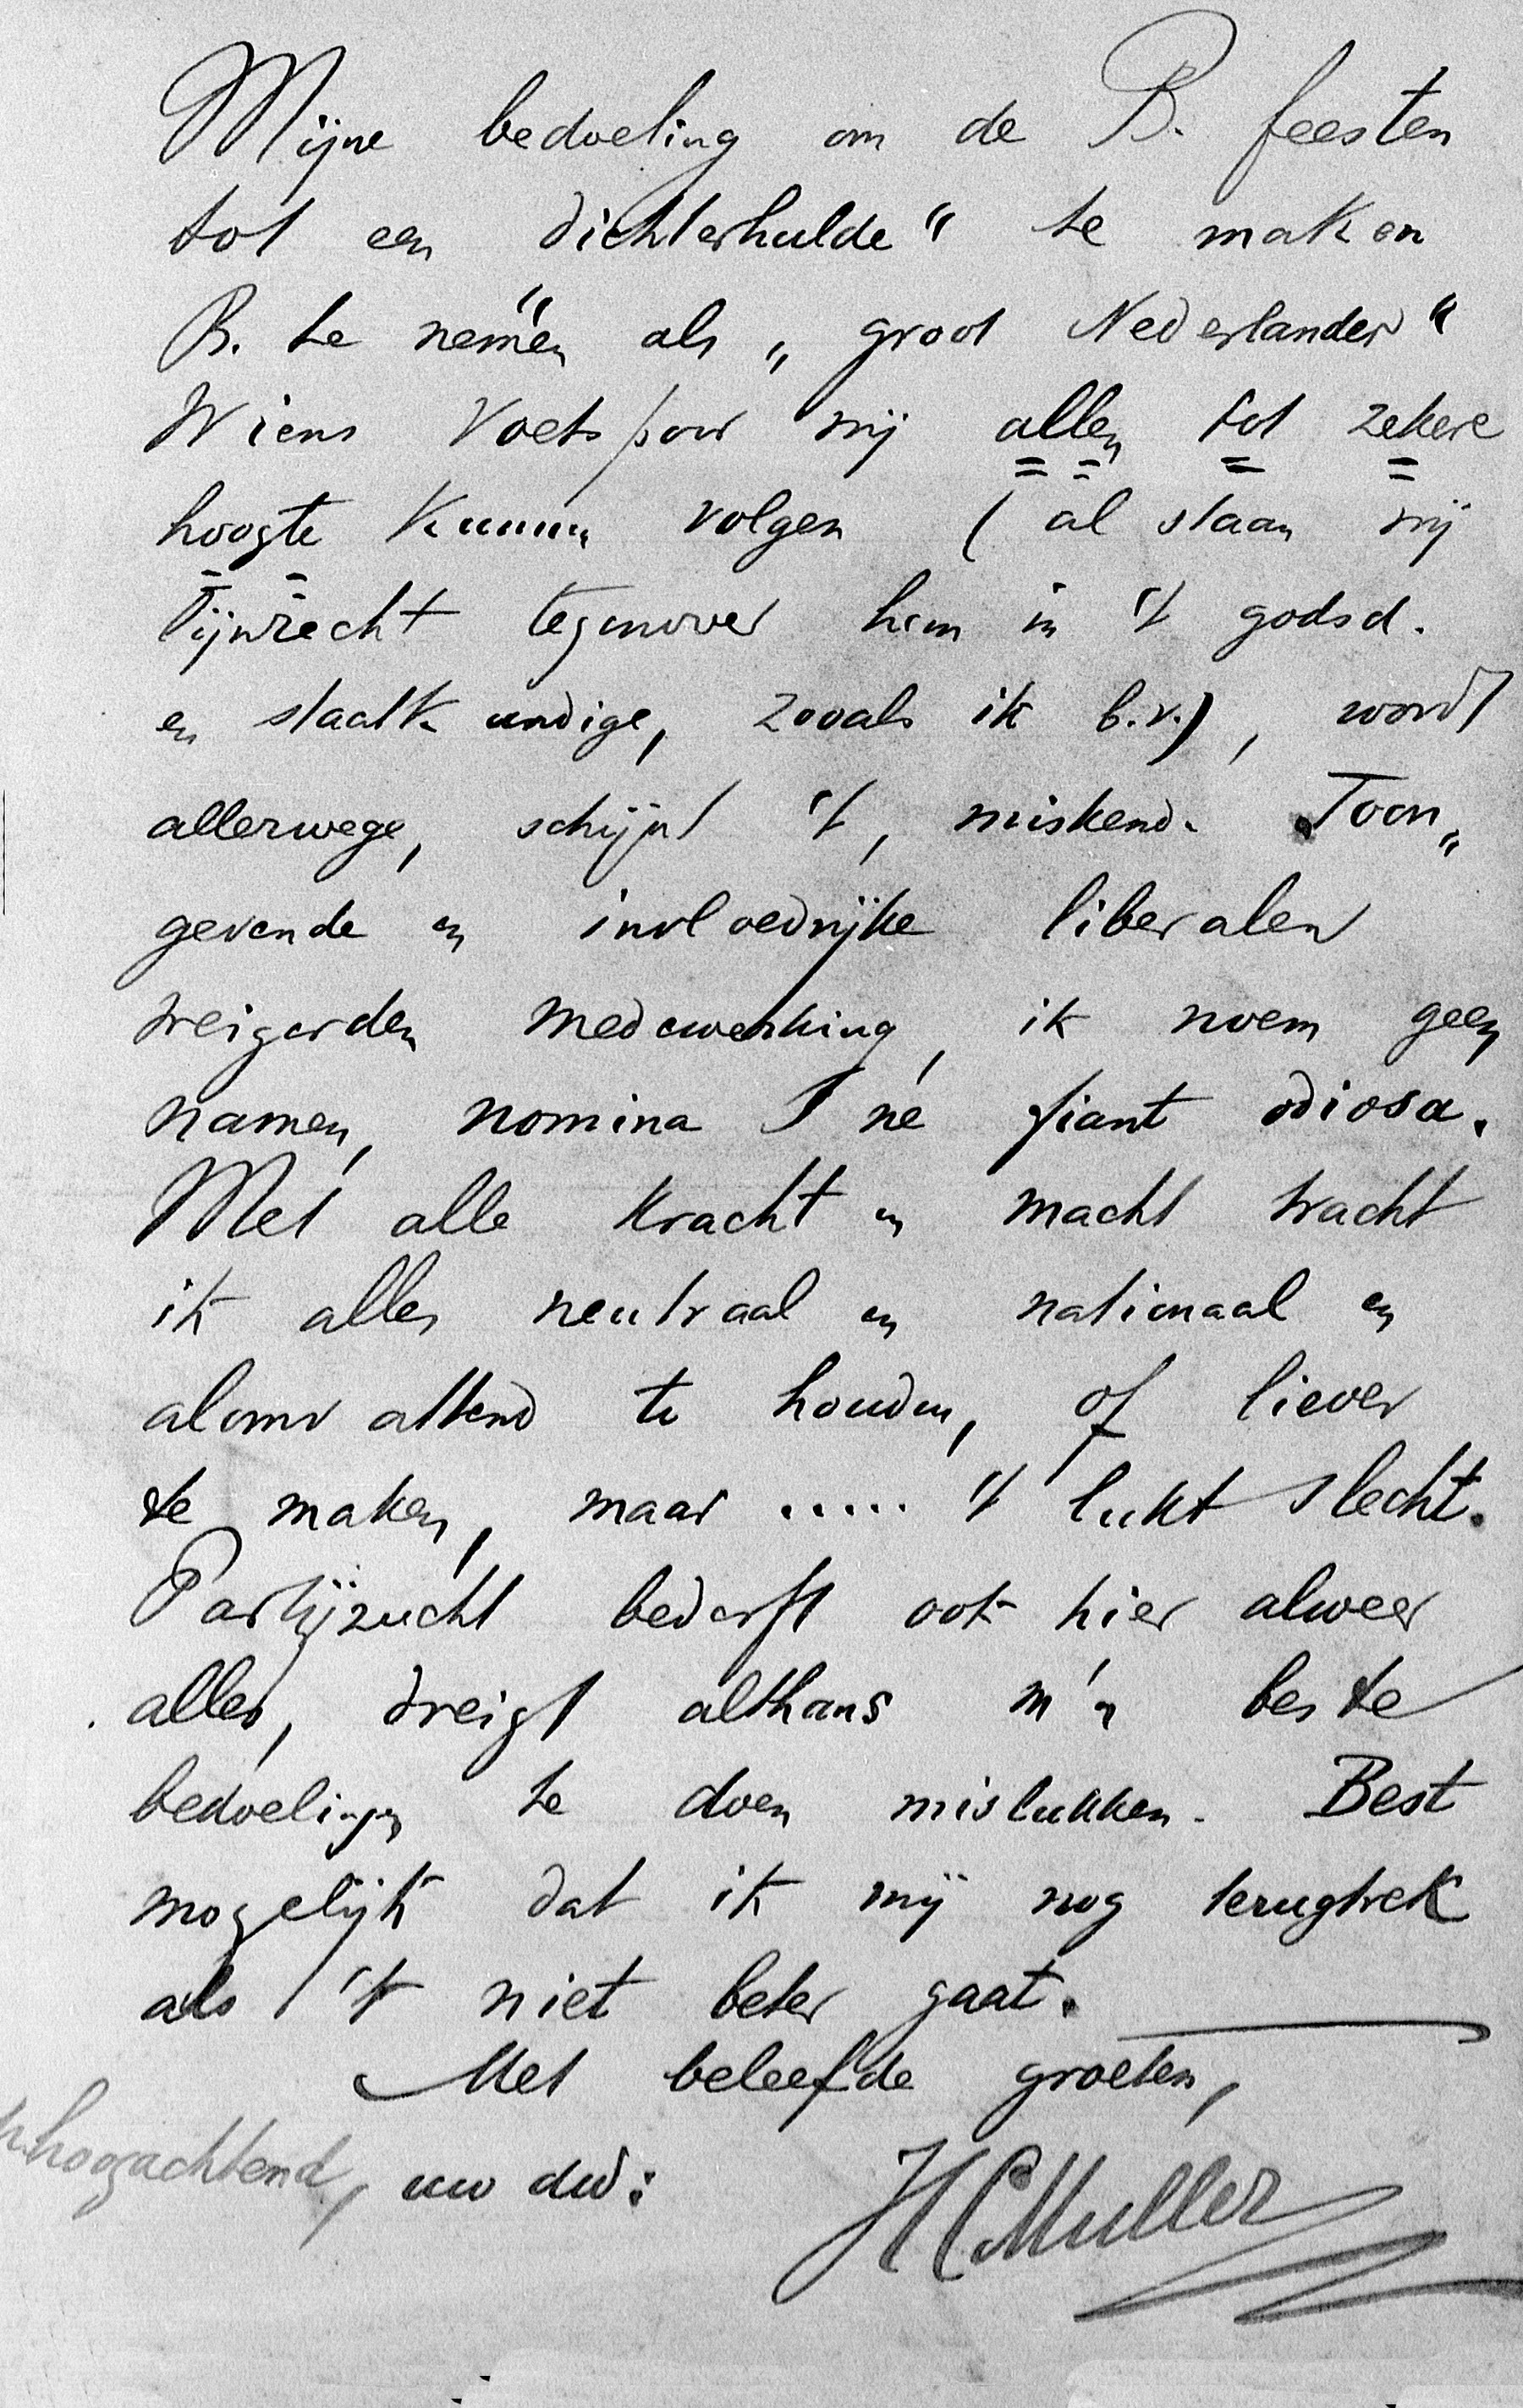 Mijne bedoeling om de B. feesten
tot een dichterhulde" te maken
B. te nemen als „ groot Nederlander"
Wiens voetspoor wij allen tot zekere
hoogte kunnen volgen ( al staan wij
lijnrecht tegenover hem in 't godsd.
en staatkundige, zooals ik b.v.), wordt
allerwege, schijnt 't, miskend. Toon„
gevende en invloedrijke liberalen
weigerden medewerking, ik noem geen
namen, nomina ne fiant odiosa.
Met alle kracht en macht tracht
ik alles neutraal en nationaal en
alomvattend te houden, of liever
te maken, maar ..... 't lukt slecht.
Partijzucht bederft ook hier alweer
alles, dreigt althans m'n beste
bedoelingen te doen mislukken. Best
mogelijk dat ik mij nog terugtrek
als 't niet beter gaat.
Met beleefde groeten,
hoogachtend, uw dw:
HCMuller